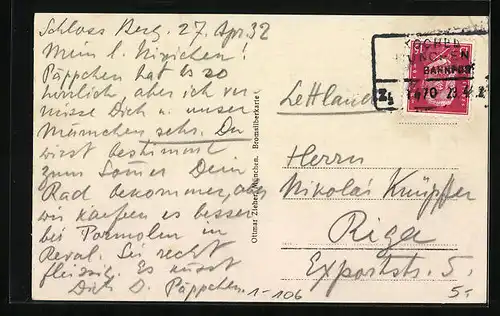 Schloss Berg. 27. Apr. 32
Mein l. Nizichen!
Päppchen hat es so
herrlich, aber ich ver-
misse Dich u. unser
Mamchen sehr. Du
wirst bestimmt
zum Somer Dein
Rad bekommen, aber
wir kaufen es besser
bei in
Reval. Sei recht
fleissig. Es küsst
Dich D. Päppchen.
1-106
Ottmar Zieher, München. Bromsilberkarte!
KOCHEL
MÜNCHEN
BAHNPOST
Z
15
Lettland
Herrn
Nikolai Knüpffer
Riga
Exportstr. 5.
5.-